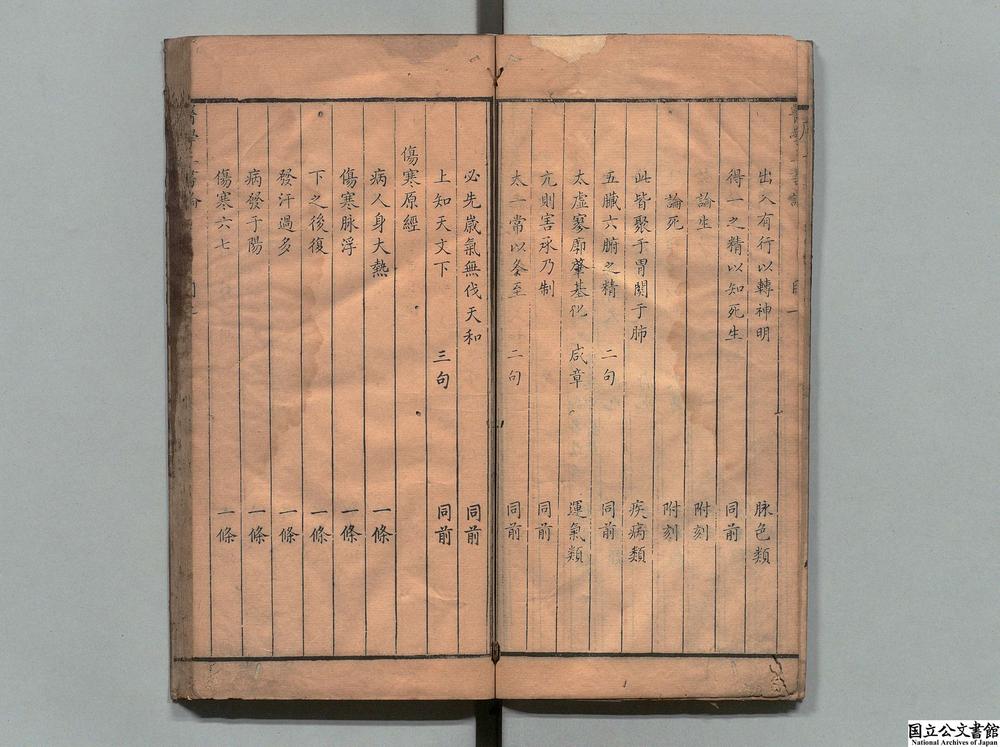 出入有行以轉神明 脉色類
得一之精以知死生 同前
論生 附刻
論死 附刻
此皆聚于胃関于肺 疾病類
五臟六腑之精 二句 同前
太虛寥廓肇基化 運氣類
亢則害承乃制 同前
二句 同前
必先歲氣無伐天和 同前
上知天文下 三句 同前
傷寒原經
病人身大熱 一條
傷寒脉浮 一條
下之後復 一條
發汗過多 一條
病發于陽 一條
傷寒六七 一條
国立公文書館
National Archives of Japan